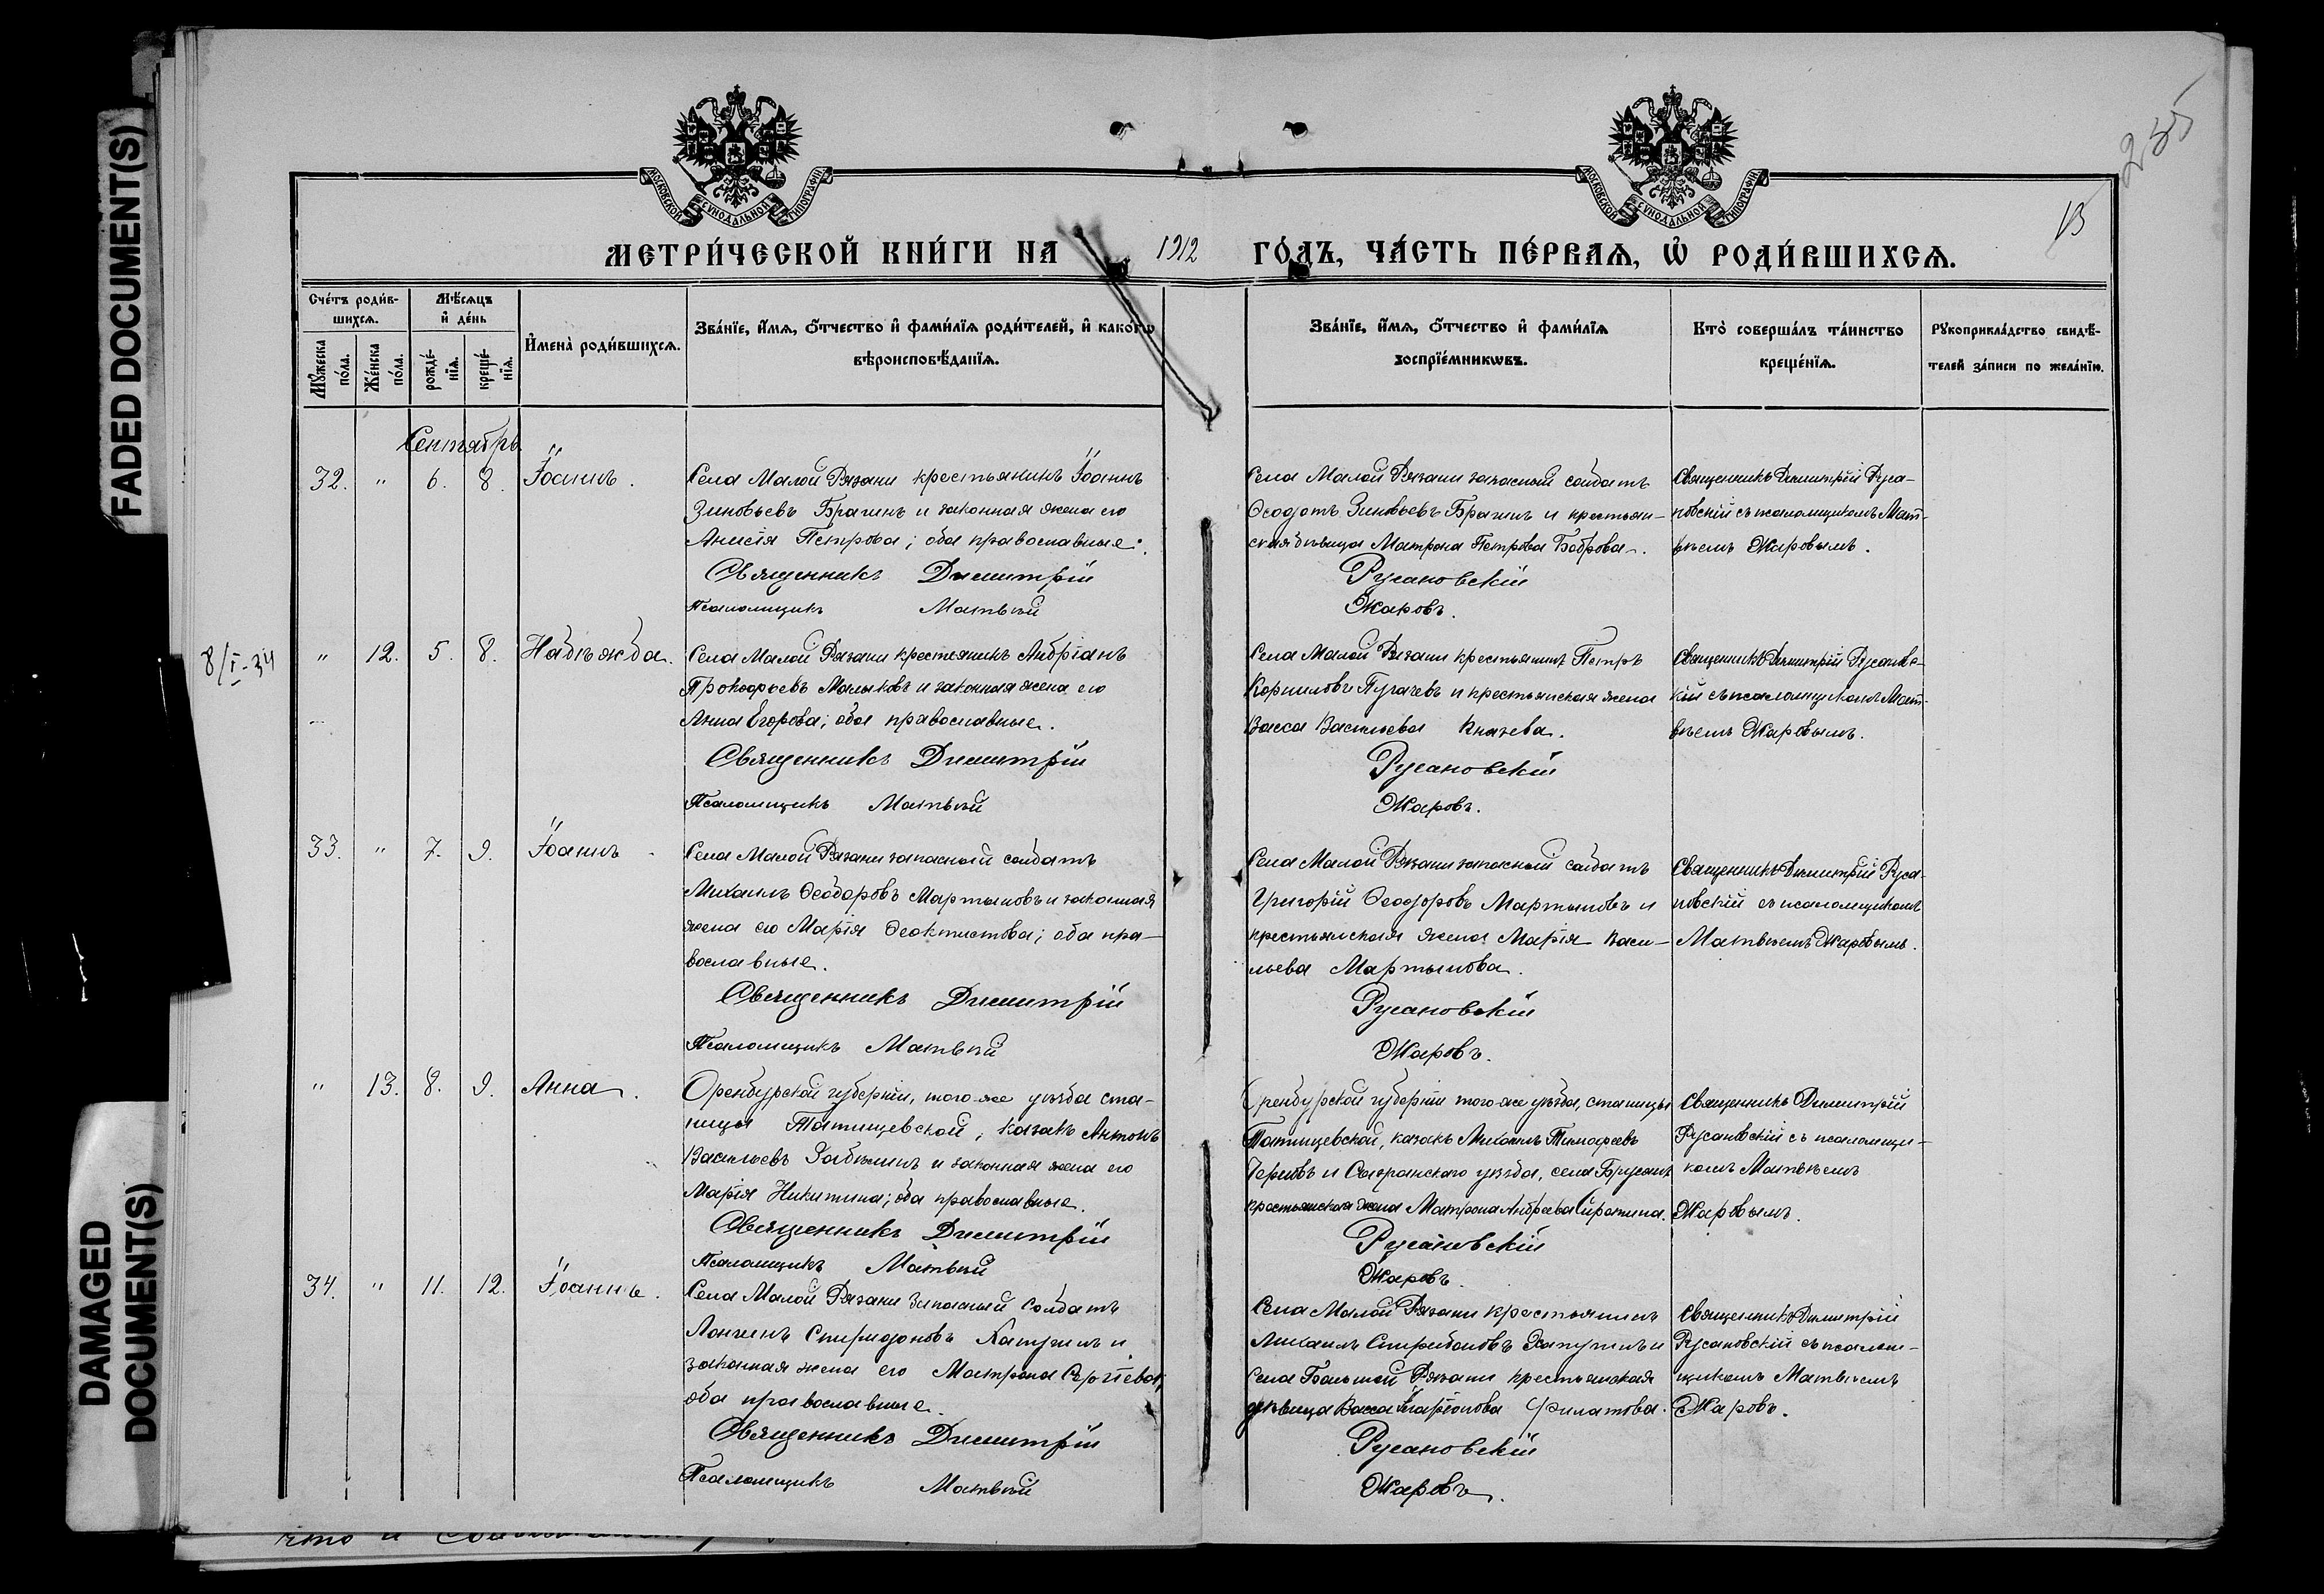 FADED DOCUMENT(S)
DAMAGED
DOCUMENT(S)
235
13
МОСКОВСКОЙ СУНОДАЛЬНОЙ ТИПОГРАФІИ
МОСКОВСКОЙ СУНОДАЛЬНОЙ ТИПОГРАФІИ
МЕТРИ́ЧЕСКОЙ КНИ́ГИ НА 1912 ГО́ДЪ, ЧА́СТЬ ПЕ́РВАЯ, Ѡ РОДИ́ВШИХСЯ.
Сче́тъ роди́в-
шихся.
Му́жеска по́ла.
Же́нска по́ла.
Мѣ́сяцъ
и де́нь
рожде́-
нїя.
креще́-
нїя.
И҆мена̀ роди́вшихся.
Зва́нїе, и҆́мя, ѻ҆́тчество и҆ фами́лїя роди́телей, и҆ како́гѡ
вѣроисповѣ́данїя.
Зва́нїе, и҆́мя, ѻ҆́тчество и҆ фами́лїя
воспрїе́мникѡвъ.
Кто̀ соверша́лъ та́инство
креще́нїя.
Рꙋкоприкла́дство свидѣ́-
телей за́писи по жела́нїю.
Сентябрь.
32. " 6. 8. Іоаннъ.
Села Малой Рязани крестьянинъ Іоаннъ
Зиновьевъ Брагинъ и законная жена его
Анисія Петрова; оба православные.
Священникъ Димитрій
Псаломщикъ Матвѣй
Села Малой Рязани запасный солдатъ
Ѳеодотъ Зиновьевъ Брагинъ и крестьян-
ская дѣвица Матрона Петрова Боброва.
Русановскій
Жаровъ.
Священникъ Димитрій Руса-
новскій съ псаломщикомъ Мат-
вѣемъ Жаровымъ.
8/I-34
" 12. 5. 8. Надѣжда.
Села Малой Рязани крестьянинъ Андріанъ
Прокофьевъ Малыковъ и законная жена его
Анна Егорова; оба православные.
Священникъ Димитрій
Псаломщикъ Матвѣй
Села Малой Рязани крестьянинъ Петръ
Корниловъ Пугачевъ и крестьянская жена
Васса Васильева Князева.
Русановскій
Жаровъ.
Священникъ Димитрій Русановс-
кій съ псаломщикомъ Мат-
вѣемъ Жаровымъ.
33. " 7. 9. Іоаннъ
Села Малой Рязани запасный солдатъ
Михаилъ Ѳеодоровъ Мартыновъ и законная
жена его Марія Ѳеоктистова; оба пра-
вославные.
Священникъ Димитрій
Псаломщикъ Матвѣй
Села Малой Рязани запасный солдатъ
Григорій Ѳеодоровъ Мартыновъ и
крестьянская жена Марія Васи-
льева Мартынова.
Русановскій
Жаровъ.
Священникъ Димитрій Руса-
новскій съ псаломщикомъ
Матвѣемъ Жаровымъ.
" 13. 8. 9. Анна.
Оренбургской губерніи, того-же уѣзда ста-
ницы Татищевской, казакъ Антонъ
Васильевъ Забѣлинъ и законная жена его
Марія Никитина; оба православные.
Священникъ Димитрій
Псаломщикъ Матвѣй
Оренбургской губерніи того-же уѣзда, станицы
Татищевской, казакъ Михаилъ Тимофеевъ
Черновъ и Сызранскаго уѣзда, села Брусянъ
крестьянская жена Матрона Андреева Сиротина.
Русановскій
Жаровъ.
Священникъ Димитрій
Русановскій съ псаломщи-
комъ Матвѣемъ
Жаровымъ.
34. " 11. 12. Іоаннъ.
Села Малой Рязани запасный солдатъ
Лонгинъ Спиридоновъ Капунинъ и
законная жена его Матрона Сергіева;
оба православные.
Священникъ Димитрій
Псаломщикъ Матвѣй
Села Малой Рязани крестьянинъ
Михаилъ Спиридоновъ Капунинъ и
села Большой Рязани крестьянская
дѣвица Васса Иларіонова Филатова.
Русановскій
Жаровъ.
Священникъ Димитрій
Русановскій съ псалом-
щикомъ Матвѣемъ
Жаровъ.
что и